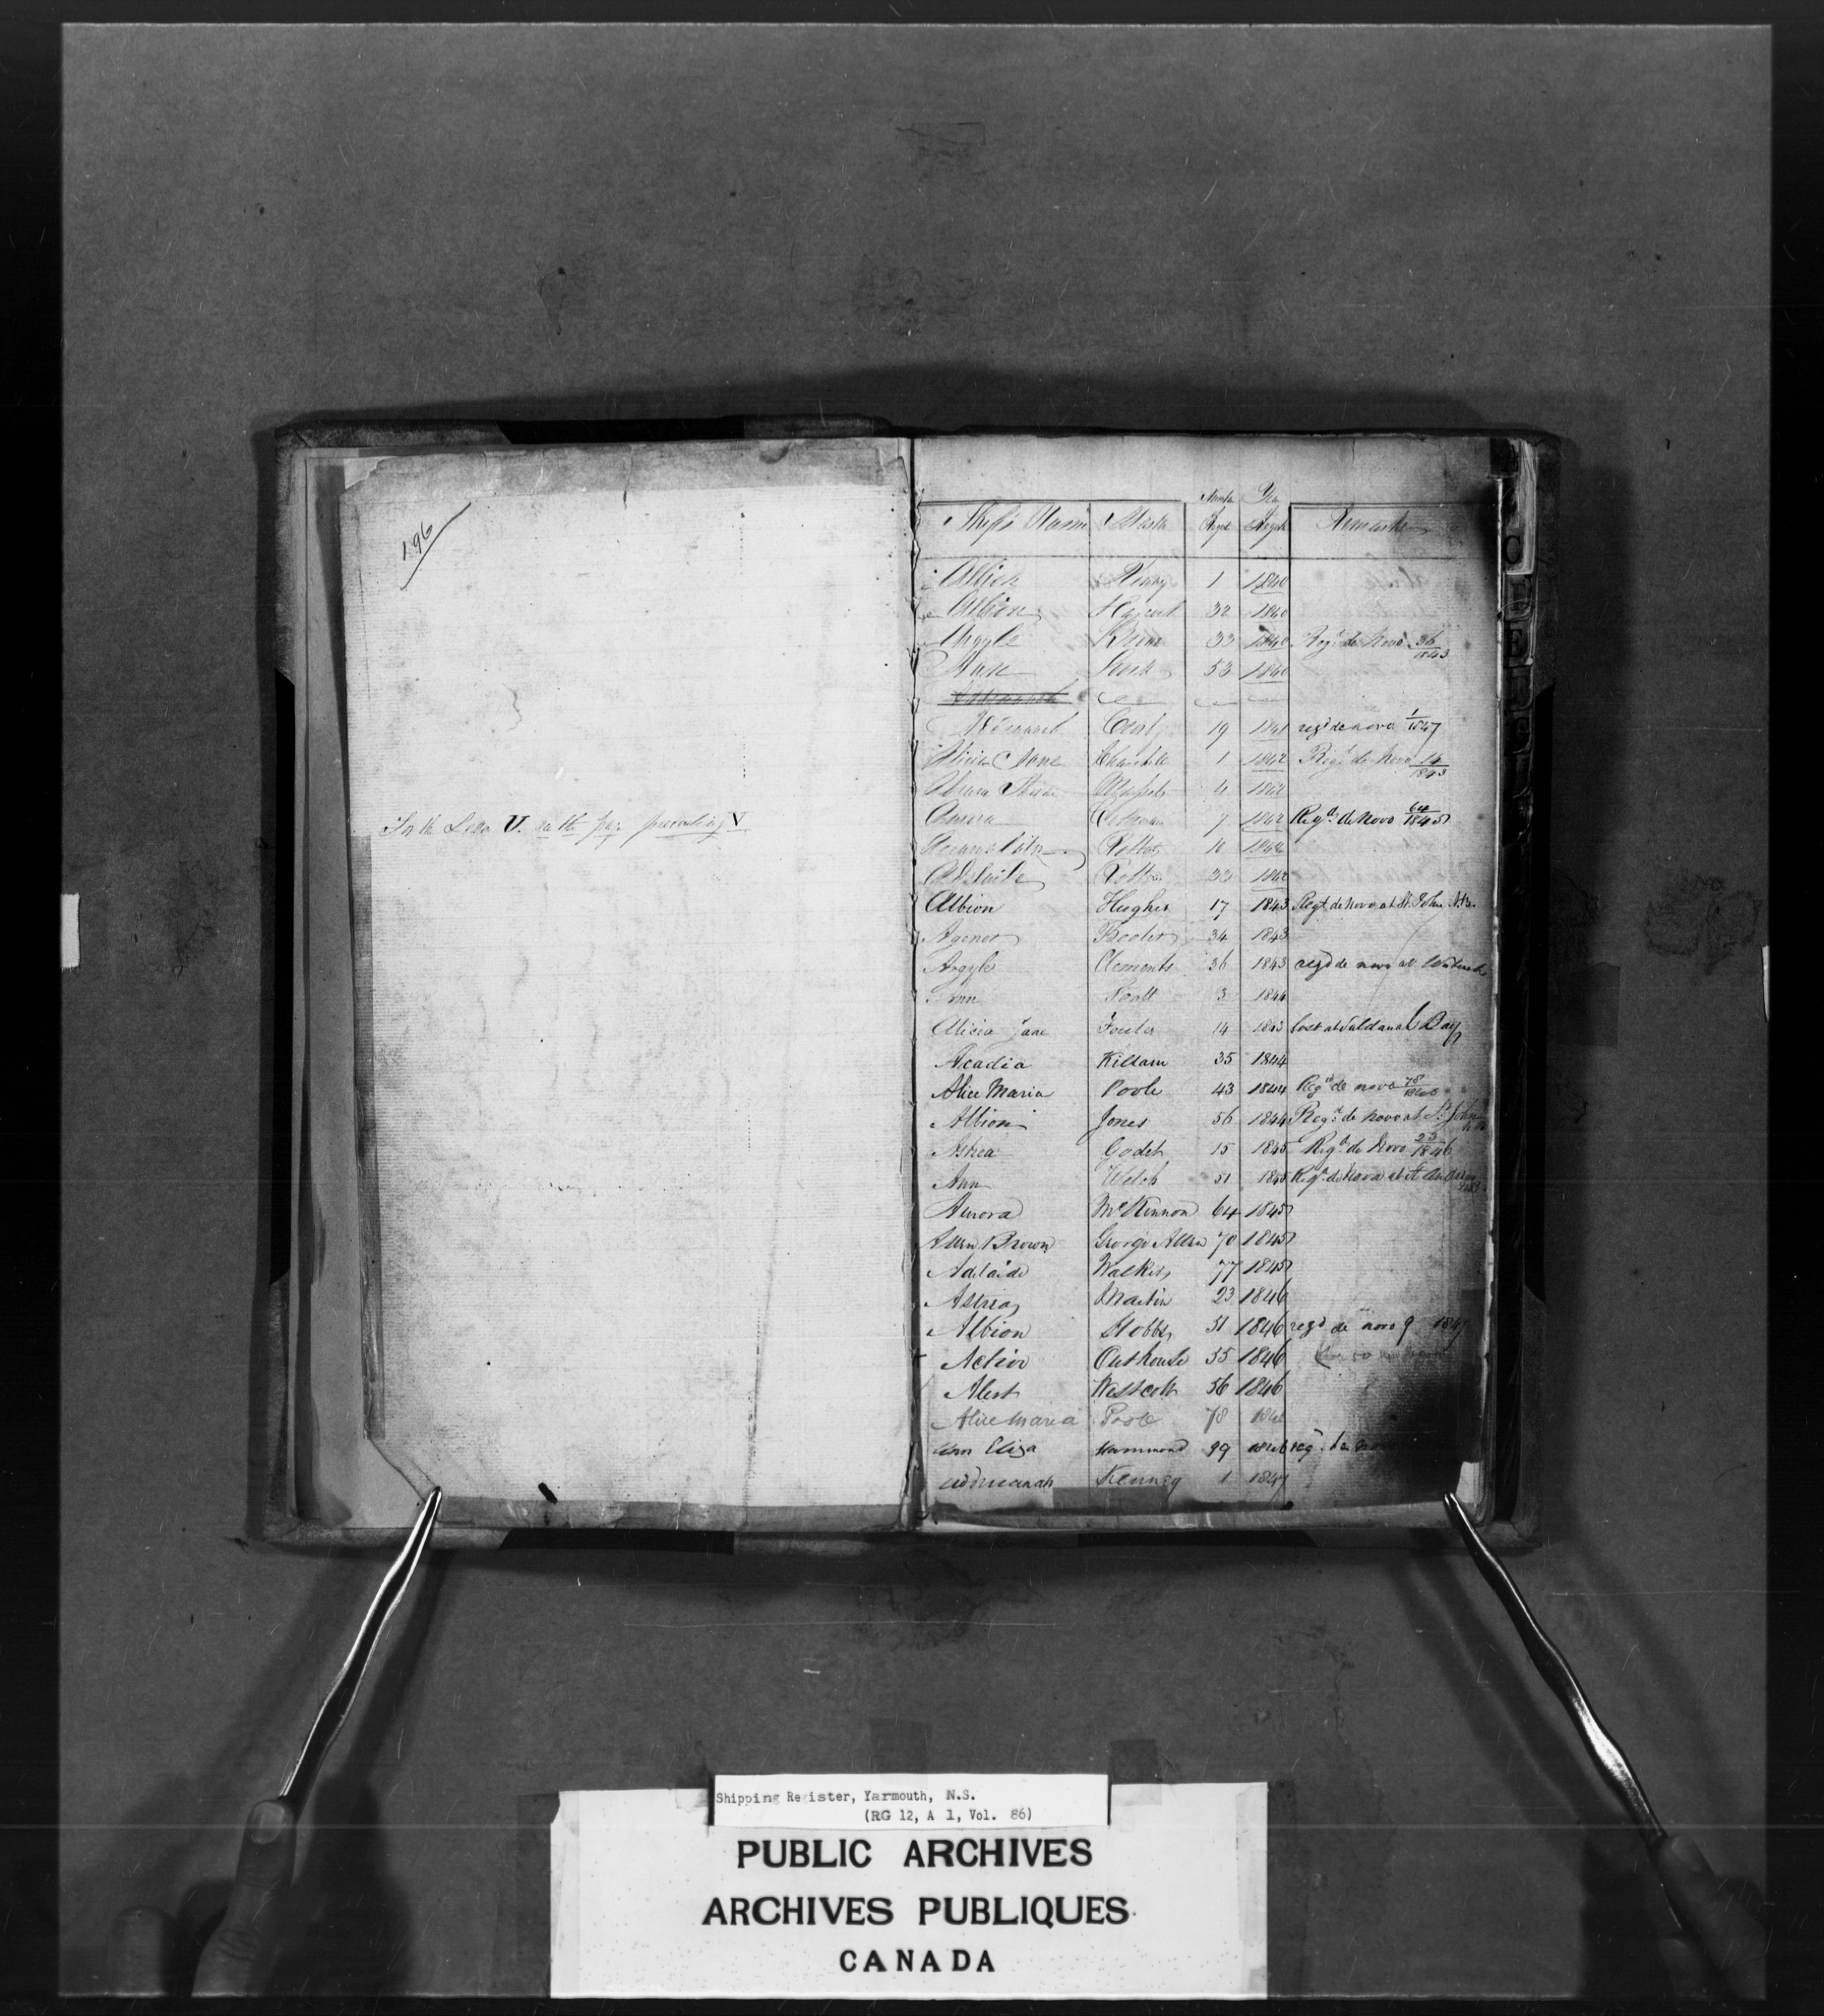 196
For the Letter V. see the page preceding V
Ship's Name Master Number Regd Year Regd Remarks
Albion 1 1840
Albion 32 1840
Argyle 33 1840 Regd de Novo 36/1843
53 1840
19 1841 regd de novo 1/1847
Alicia Jane 1 1842 Regd de Novo 14/1843
1842
7 1842 Regd de Novo 64/1845
1842
Adelaide 33 1842
Albion Hughes 17 1843 Regd de novo at St. John N.B.
Agenor 34 1843
Argyle Clements 36 1843 regd de novo at
Ann Scott 3 1844
Alicia Jane Fowler 14 1843 Lost at Bay
Acadia Killam 35 1844
Alice Maria Poole 43 1844 Regd de novo 78/1846
Albion Jones 56 1844 Regd de novo at St. John
Astrea Godet 15 1845 Regd de Novo 23/1846
Ann Welch 51 1845 Regd de Novo at St Andrews
Aurora McKinnon 64 1845
Allen Brown George Allen 70 1845
Adelaide Walker 77 1845
Astrea Martin 23 1846
Albion Stobbs 51 1846 regd de novo 9 1847
Active Outhouse 55 1846
Alert Westcott 56 1846
Alice Maria Poole 78 1846
Ann Eliza Hammond 99 1846 reg. de
Kenney 1 1847
Shipping Register, Yarmouth, N.S.
(RG 12, A 1, Vol. 86)
PUBLIC ARCHIVES
ARCHIVES PUBLIQUES
CANADA